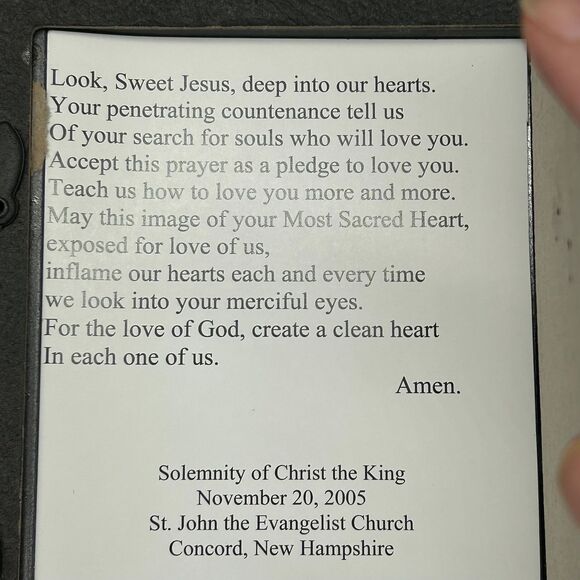 Look, Sweet Jesus, deep into our hearts.
Your penetrating countenance tell us
Of your search for souls who will love you.
Accept this prayer as a pledge to love you.
Teach us how to love you more and more.
May this image of your Most Sacred Heart,
exposed for love of us,
inflame our hearts each and every time
we look into your merciful eyes.
For the love of God, create a clean heart
In each one of us.
Amen.
Solemnity of Christ the King
November 20, 2005
St. John the Evangelist Church
Concord, New Hampshire